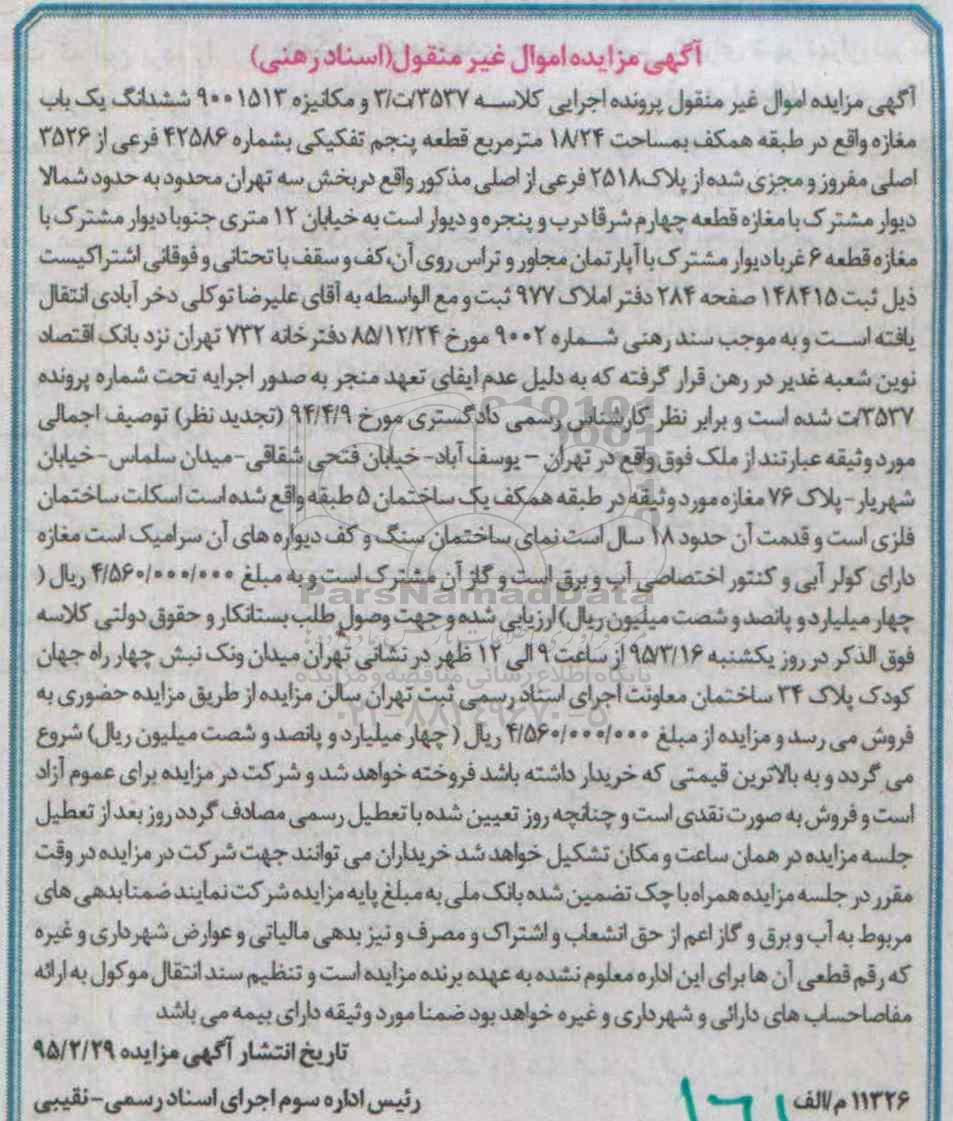 آگهی مزایده اموال غیر منقول(اسناد رهنی)
آگهی مزایده اموال غیر منقول پرونده اجرایی کلاسه ۳۵۳۷/ت/۳ و مکانیزه ۹۰۰۱۵۱۳ ششدانگ یک باب
مغازه واقع در طبقه همکف بمساحت ۱۸/۲۴ مترمربع قطعه پنجم تفکیکی بشماره ۴۲۵۸۶ فرعی از ۳۵۲۶
اصلی مفروز و مجزی شده از پلاک۲۵۱۸ فرعی از اصلی مذکور واقع دربخش سه تهران محدود به حدود شمالا
دیوار مشترک با مغازه قطعه چهارم شرقا درب و پنجره و دیوار است به خیابان ۱۲ متری جنوبا دیوار مشترک با
مغازه قطعه ۶ غربا دیوار مشترک با آپارتمان مجاور و تراس روی آن، کف و سقف با تحتانی و فوقانی اشتراکیست
ذیل ثبت ۱۴۸۴۱۵ صفحه ۲۸۴ دفتر املاک ۹۷۷ ثبت و مع الواسطه به آقای علیرضا توکلی دخر آبادی انتقال
یافته است و به موجب سند رهنی شماره ۹۰۰۲ مورخ ۸۵/۱۲/۲۴ دفترخانه ۷۳۲ تهران نزد بانک اقتصاد
نوین شعبه غدیر در رهن قرار گرفته که به دلیل عدم ایفای تعهد منجر به صدور اجرایه تحت شماره پرونده
۳۵۳۷/ت شده است و برابر نظر کارشناس رسمی دادگستری مورخ ۹۴/۴/۹ (تجدید نظر) توصیف اجمالی
مورد وثیقه عبارتند از ملک فوق واقع در تهران – یوسف آباد- خیابان فتحی شقاقی-میدان سلماس-خیابان
شهریار-پلاک ۷۶ مغازه مورد وثیقه در طبقه همکف یک ساختمان ۵ طبقه واقع شده است اسکلت ساختمان
فلزی است و قدمت آن حدود ۱۸ سال است نمای ساختمان سنگ و کف دیواره های آن سرامیک است مغازه
دارای کولر آبی و کنتور اختصاصی آب و برق است و گاز آن مشترک است و به مبلغ ۴/۵۶۰/۰۰۰/۰۰۰ ریال (
چهار میلیارد و پانصد و شصت میلیون ریال) ارزیابی شده و جهت وصول طلب بستانکار و حقوق دولتی کلاسه
فوق الذکر در روز یکشنبه ۹۵/۳/۱۶ از ساعت ۹ الی ۱۲ ظهر در نشانی تهران میدان ونک نبش چهار راه جهان
کودک پلاک ۳۴ ساختمان معاونت اجرای اسناد رسمی ثبت تهران سالن مزایده از طریق مزایده حضوری به
فروش می رسد و مزایده از مبلغ ۴/۵۶۰/۰۰۰/۰۰۰ ریال ( چهار میلیارد و پانصد و شصت میلیون ریال) شروع
می گردد و به بالاترین قیمتی که خریدار داشته باشد فروخته خواهد شد و شرکت در مزایده برای عموم آزاد
است و فروش به صورت نقدی است و چنانچه روز تعیین شده با تعطیل رسمی مصادف گردد روز بعد از تعطیل
جلسه مزایده در همان ساعت و مکان تشکیل خواهد شد خریداران می توانند جهت شرکت در مزایده در وقت
مقرر در جلسه مزایده همراه با چک تضمین شده بانک ملی به مبلغ پایه مزایده شرکت نمایند ضمنا بدهی های
مربوط به آب و برق و گاز اعم از حق انشعاب و اشتراک و مصرف و نیز بدهی مالیاتی و عوارض شهرداری و غیره
که رقم قطعی آن ها برای این اداره معلوم نشده به عهده برنده مزایده است و تنظیم سند انتقال موکول به ارائه
مفاصاحساب های دارائی و شهرداری و غیره خواهد بود ضمنا مورد وثیقه دارای بیمه می باشد
تاریخ انتشار آگهی مزایده ۹۵/۲/۲۹
۱۱۳۲۶ م/الف
رئیس اداره سوم اجرای اسناد رسمی-نقیبی
ParsNamadData
پایگاه اطلاع رسانی مناقصه و مزایده
۰۲۱-۸۸۳۴۹۶۷۰-۵